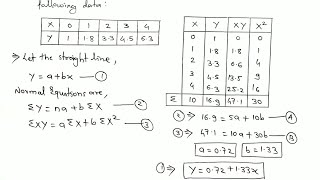 following data:
X 0 1 2 3 4
Y 1 1.8 3.3 4.5 6.3
⇒ Let the straight line,
Y = a+bx — ①
Normal Equations are,
ΣY = na + bΣX — ②
ΣXY = aΣX + bΣX² — ③
X Y XY X²
0 1 0 0
1 1.8 1.8 1
2 3.3 6.6 4
3 4.5 13.5 9
4 6.3 25.2 16
Σ 10 16.9 47.1 30
② ⇒ 16.9 = 5a + 10b — ④
③ ⇒ 47.1 = 10a + 30b —
a = 0.72 b = 1.33
① ⇒ Y = 0.72 + 1.33x